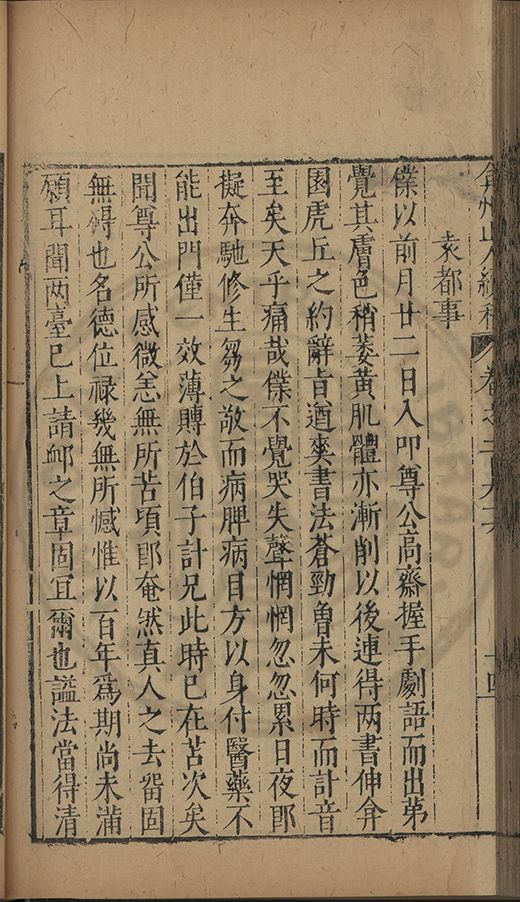 弇州山人續稿 卷之一百九十六 十四
袁都事
僕以前月廿二日入叩尊公高齋握手劇語而出苐
覺其膚色稍萎黃肌體亦漸削以後連得两書伸弇
園虎丘之約辭㫖遒爽書法蒼勁曽未何時而訃音
至矣天乎痛哉僕不覺哭失聲惘惘忽忽累日夜卽
擬奔馳修生芻之敬而病脾病目方以身付醫藥不
能出門僅一效薄賻於伯子計兄此時已在苫次矣
聞尊公所感微恙無所苦頃卽奄然真人之去畱固
無碍也名德位禄幾無所憾惟以百年爲期尚未滿
願耳聞两臺已上請䘏之章固宜爾也謚法當得清